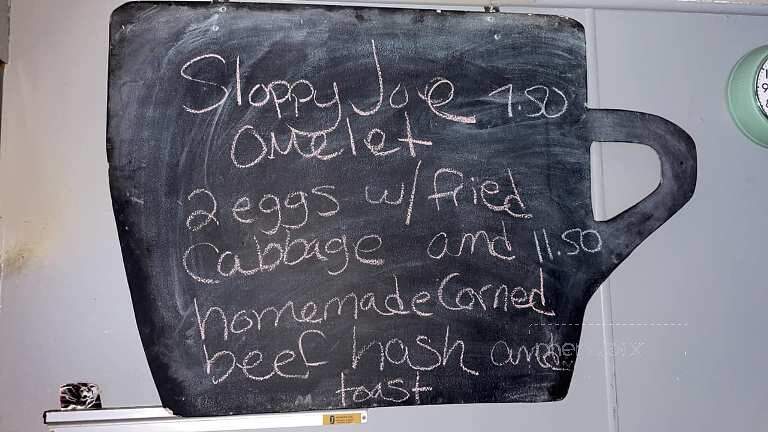 Sloppy Joe 9.50
omelet
2 eggs w/ fried
Cabbage and 11.50
homemade Corned
beef hash and
toast